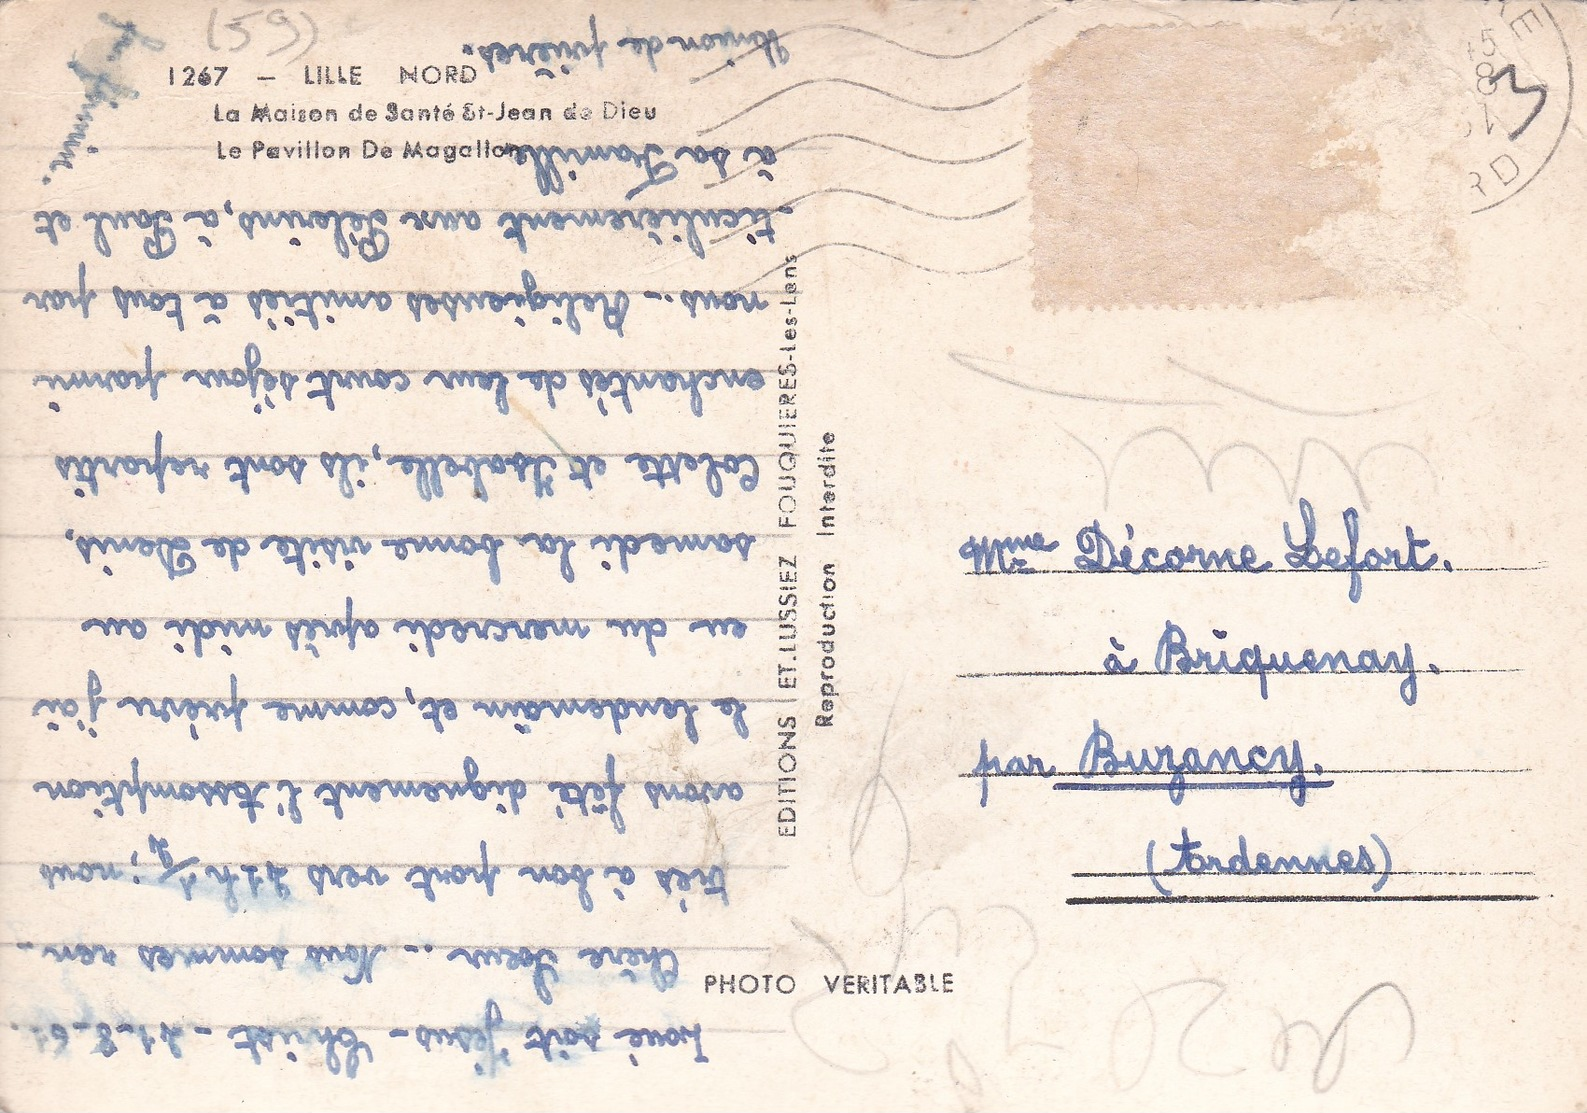 (59)
1267 — LILLE NORD
La Maison de Santé St-Jean de Dieu
Le Pavillon De Magallon
Loué soit Jésus-Christ - 21-8-61.
Chère Soeur .. Nous sommes ren-
trés à bon port vers 21h 1/2 ; nous
avons fêté dignement l'Assomption
le lendemain et, comme prévu j'ai
eu du mercredi après midi au
samedi la bonne visite de Denis,
Colette et Isabelle, ils sont repartis
enchantés de leur court séjour parmi
nous .. Religieuses amitiés à tous par
ticulièrement aux Pèlerins, à Paul et
à sa Famille
Union de prières.
EDITIONS ET.LUSSIEZ FOUQUIERES-les-Lens
Reproduction Interdite
PHOTO VERITABLE
Mme Décorne Lefort.
à Briquenay.
par Buzancy.
(Ardennes)